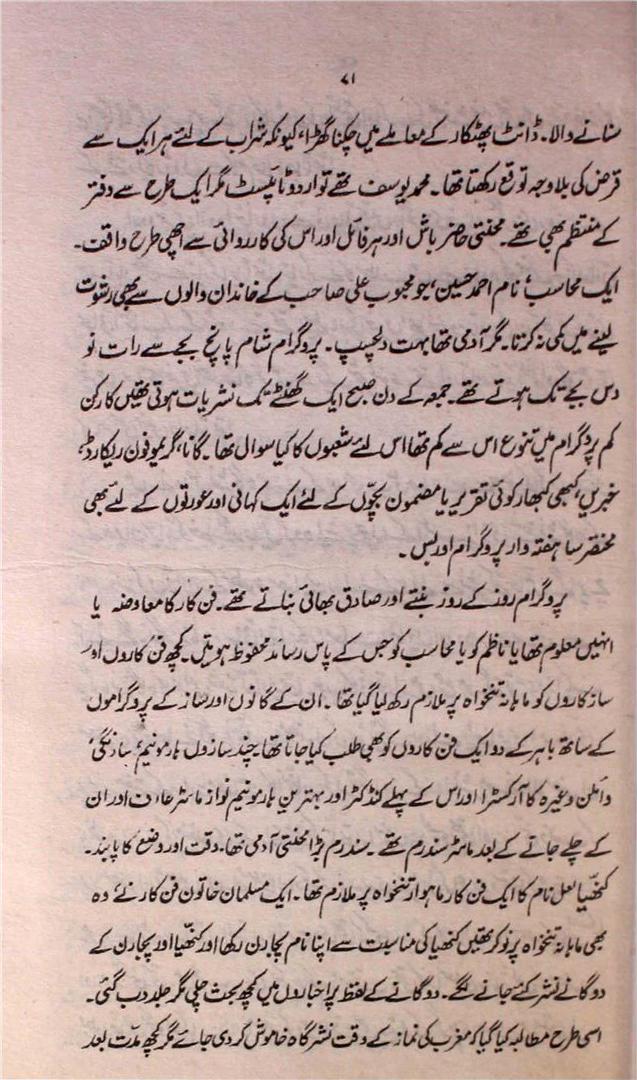 ۷۱
سنانے والا۔ ڈانٹ پھٹکار کے معاملے میں چکنا گھڑا، کیونکہ شراب کے لئے ہر ایک سے
قرض کی بلاوجہ توقع رکھتا تھا۔ محمد یوسف تھے تو اردو ٹائپسٹ مگر ایک طرح سے دفتر
کے منتظم بھی تھے۔ محنتی حاضر باش اور ہر فائل اور اس کی کارروائی سے اچھی طرح واقف۔
ایک محاسب، نام احمد حسین، جو محبوب علی صاحب کے خاندان والوں سے بھی رشوت
لینے میں کمی نہ کرتا۔ مگر آدمی تھا بہت دلچسپ۔ پروگرام شام پانچ بجے سے رات نو
دس بجے تک ہوتے تھے۔ جمعہ کے دن صبح ایک گھنٹے تک نشریات ہوتی تھیں کارکن
کم پروگرام میں تنوع اس سے کم تھا اس لئے شعبوں کا کیا سوال تھا۔ گانا، گریموفون ریکارڈ،
خبریں، کبھی کبھار کوئی تقریر یا مضمون بچّوں کے لئے ایک کہانی اور عورتوں کے لئے بھی
مختصر سا ہفتہ وار پروگرام اور بس۔
پروگرام روز کے روز بنتے اور صادق بھائی بناتے تھے۔ فن کار کا معاوضہ یا
انہیں معلوم تھا یا ناظم کو یا محاسب کو جس کے پاس رسائد محفوظ ہوتیں۔ کچھ فن کاروں اور
ساز کاروں کو ماہانہ تنخواہ پر ملازم رکھ لیا گیا تھا۔ ان کے گانوں اور ساز کے پروگراموں
کے ساتھ باہر کے دو ایک فن کاروں کو بھی طلب کیا جاتا تھا۔ چند سازوں ہارمونیم، سارنگی،
وائلن وغیرہ کا آرکسٹرا اور اس کے پہلے کنڈکٹر اور بہترین ہارمونیم نواز ماسٹر عارف اور ان
کے چلے جانے کے بعد ماسٹر سندرم تھے۔ سندرم بڑا محنتی آدمی تھا۔ وقت اور وضع کا پابند۔
کنھیّا لعل نام کا ایک فن کار ماہوار تنخواہ پر ملازم تھا۔ ایک مسلمان خاتون فن کار نے وہ
بھی ماہانہ تنخواہ پر نوکر تھیں کنھیا کی مناسبت سے اپنا نام پجارن رکھا اور کنھیّا اور پجارن کے
دوگانے نشر کئے جانے لگے۔ دوگانے کے لفظ پر اخباروں میں کچھ بحث چلی مگر جلد دب گئی۔
اسی طرح مطالبہ کیا گیا کہ مغرب کی نماز کے وقت نشر گاہ خاموش کر دی جائے مگر کچھ مدّت بعد